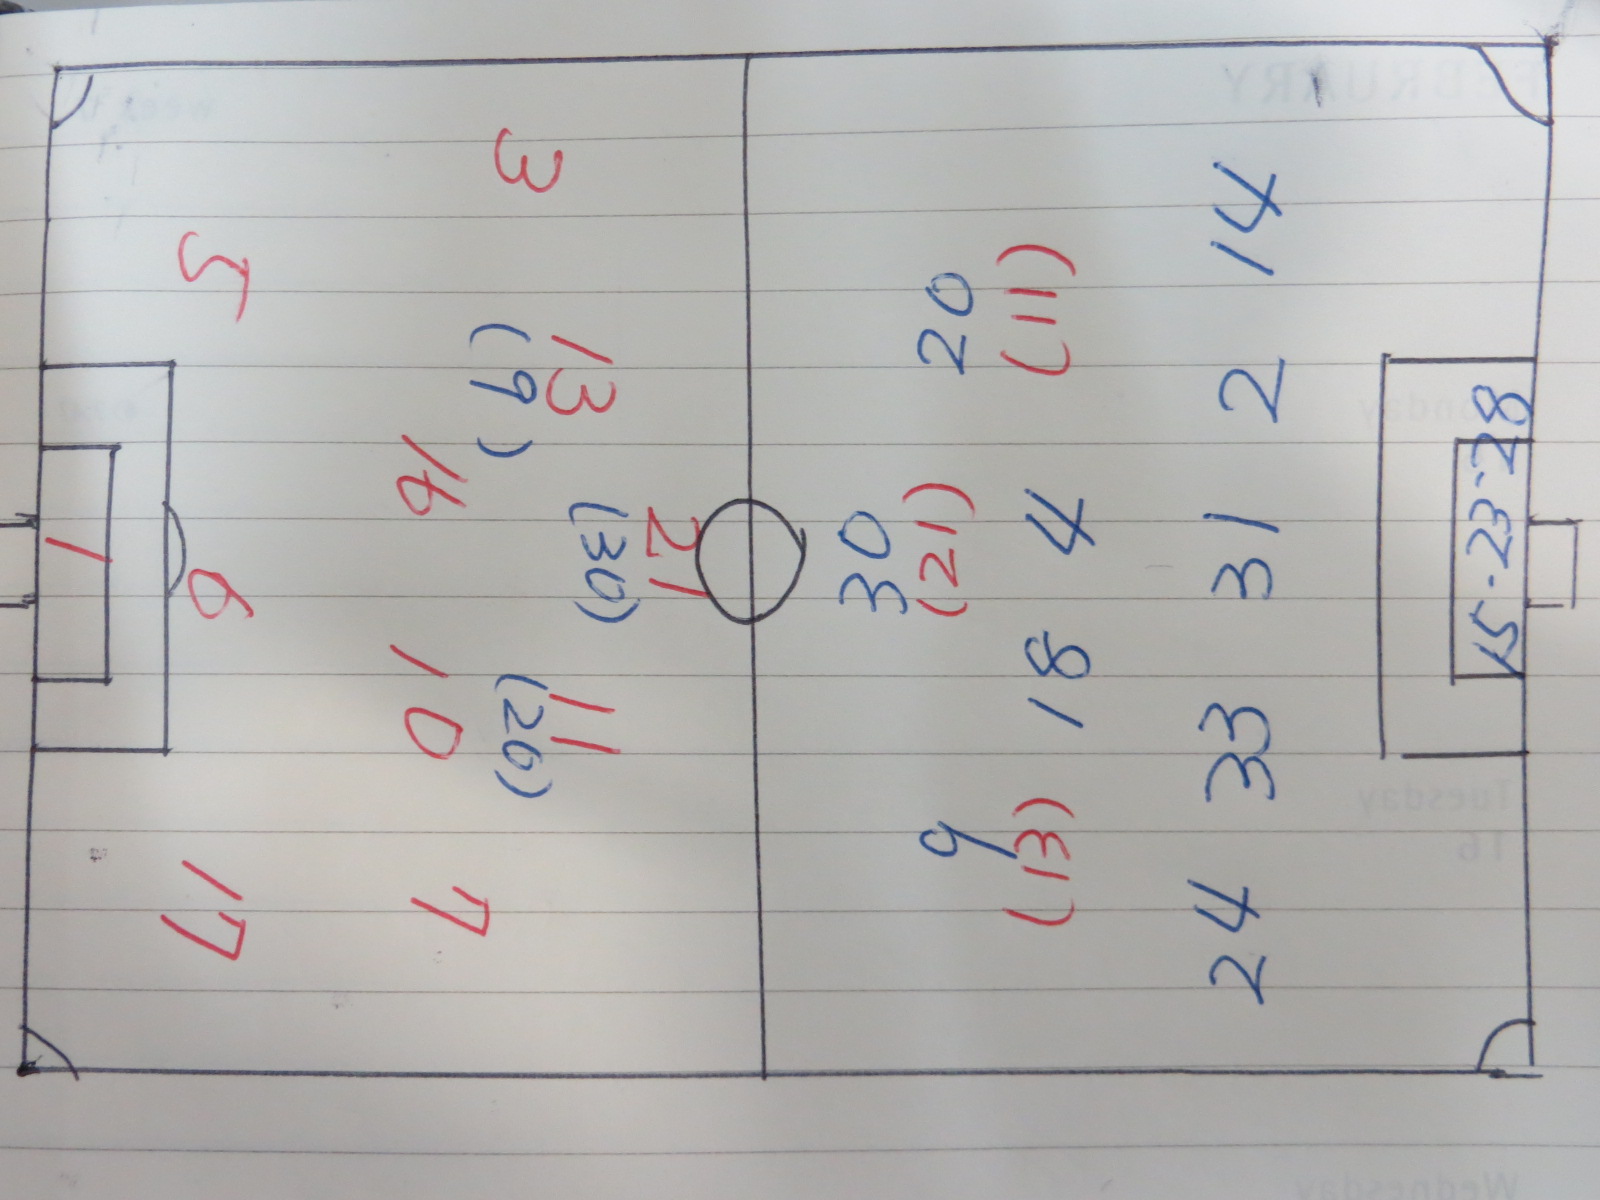 21
13 11
(30)
3 (9) (20)
16 10 7
5 6 17
1
30
9 20
(21)
(13) (11)
18 4
24 33 31 2 14
15·23·28